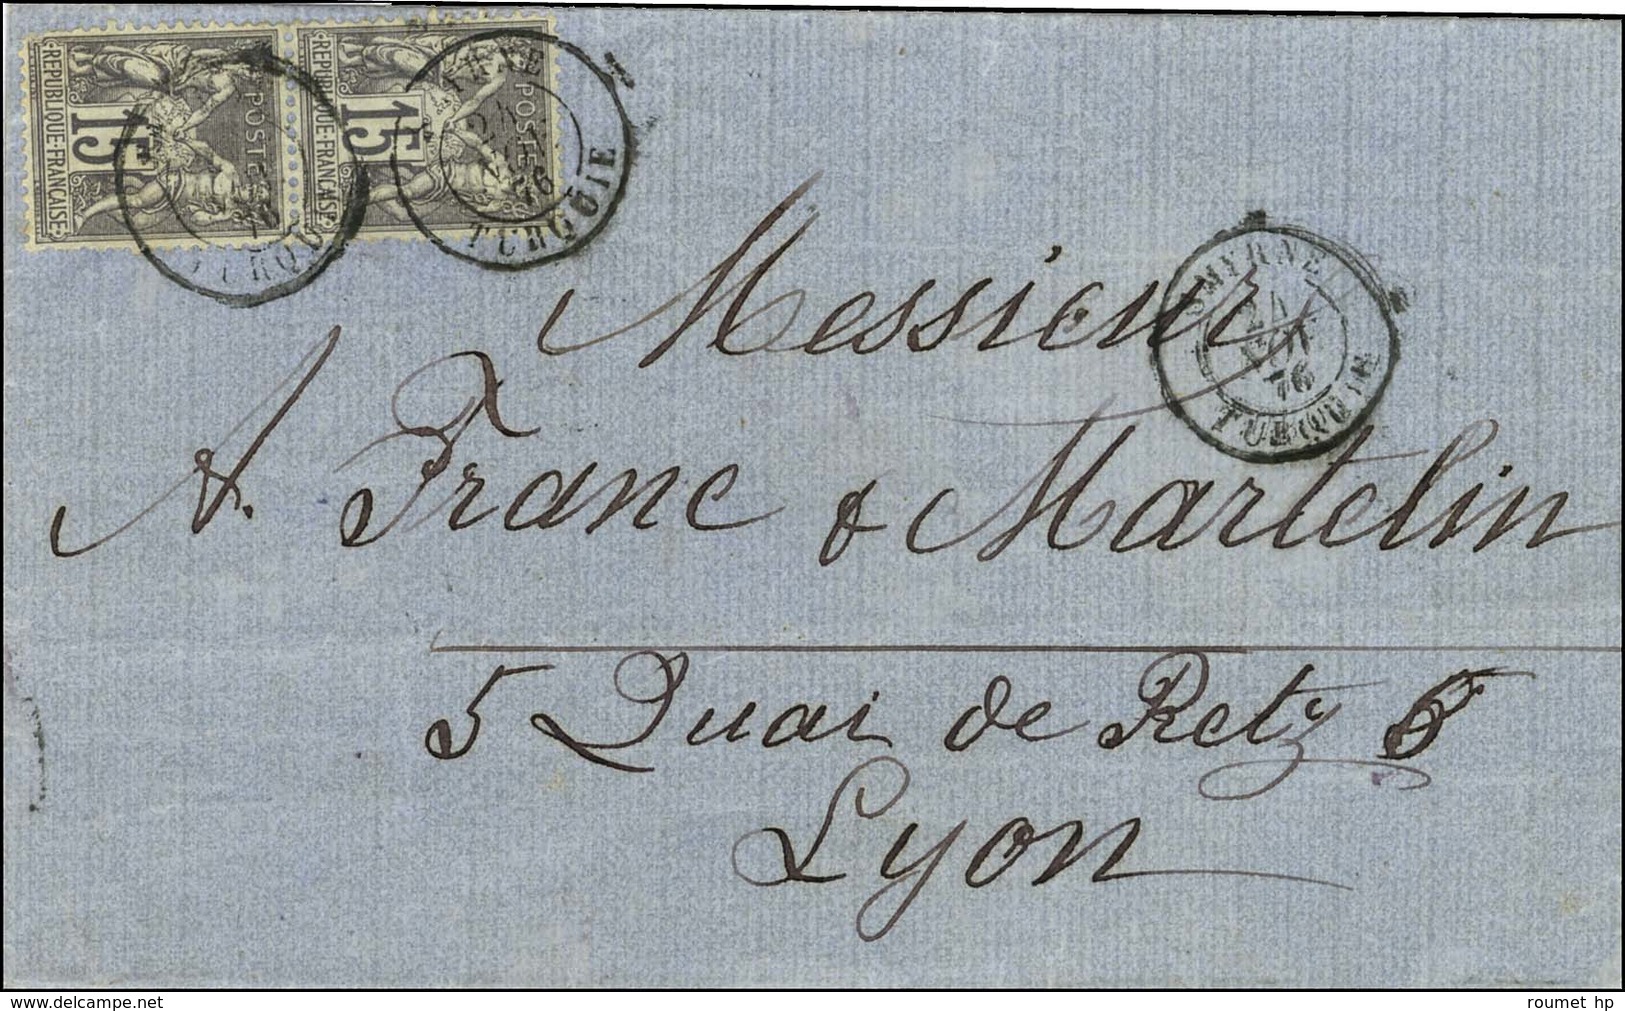 REPUBLIQUE·FRANÇAISE
15
POSTE
REPUBLIQUE·FRANÇAISE
15
POSTE
TURQUIE
76
SMYRNE
24
76
TURQUIE
Messieurs
A. Franc & Martelin
5 Quai de Retz 5
Lyon
www.delcampe.net
roumet hp